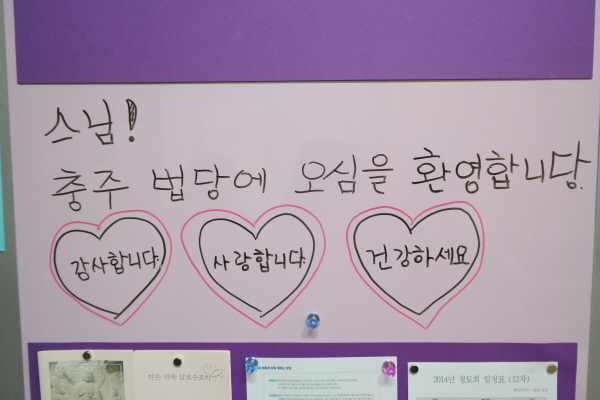 스님!
충주 법당에 오심을 환영합니다.
감사합니다. 사랑합니다. 건강하세요
2014년 정토회 일정표 (12차)